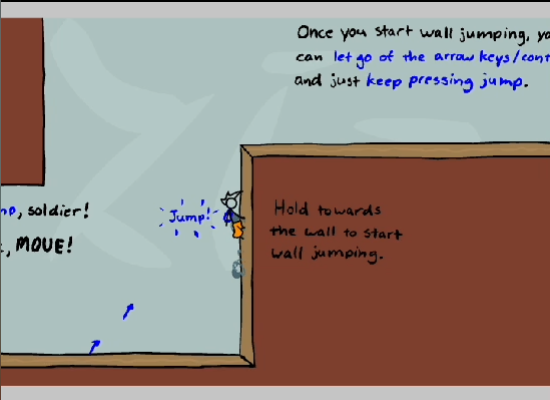 Once you start wall jumping,
can let go of the arrow keys/
and just keep pressing jump.
soldier!
Jump!
MOVE!
Hold towards
the wall to start
wall jumping.